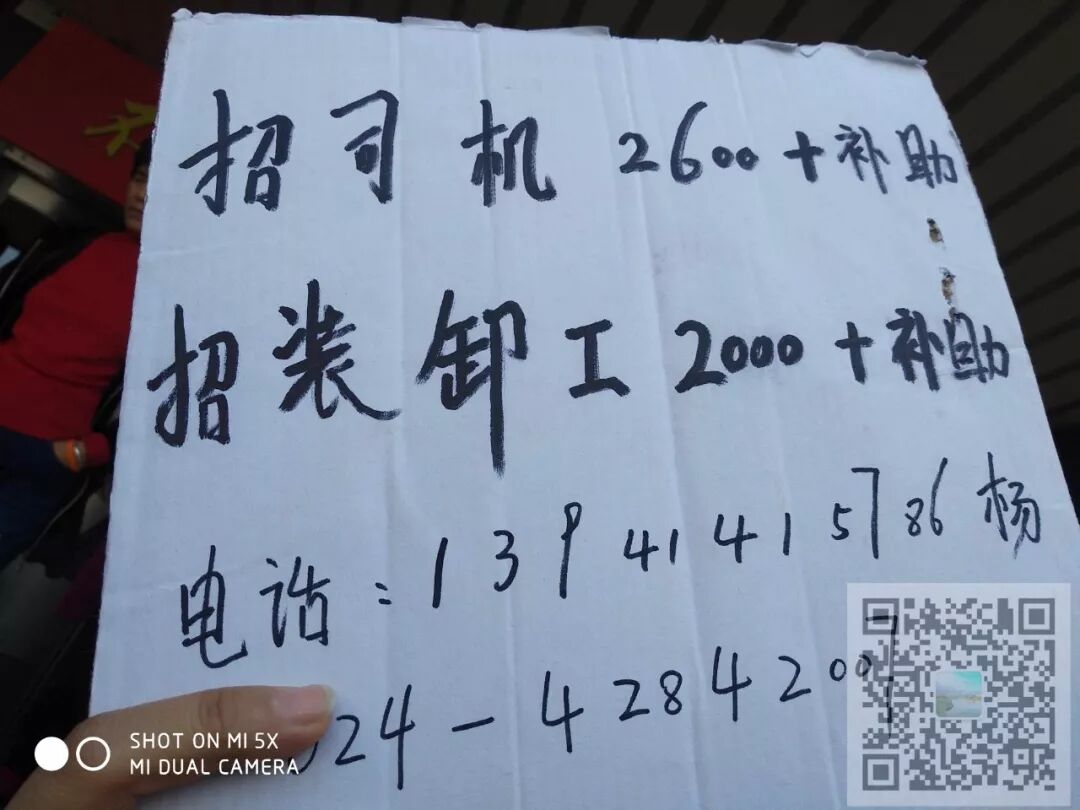 招司机 2600+补助
招装卸工 2000+补助
电话:13941415786 杨
024-42842007
SHOT ON MI 5X
MI DUAL CAMERA